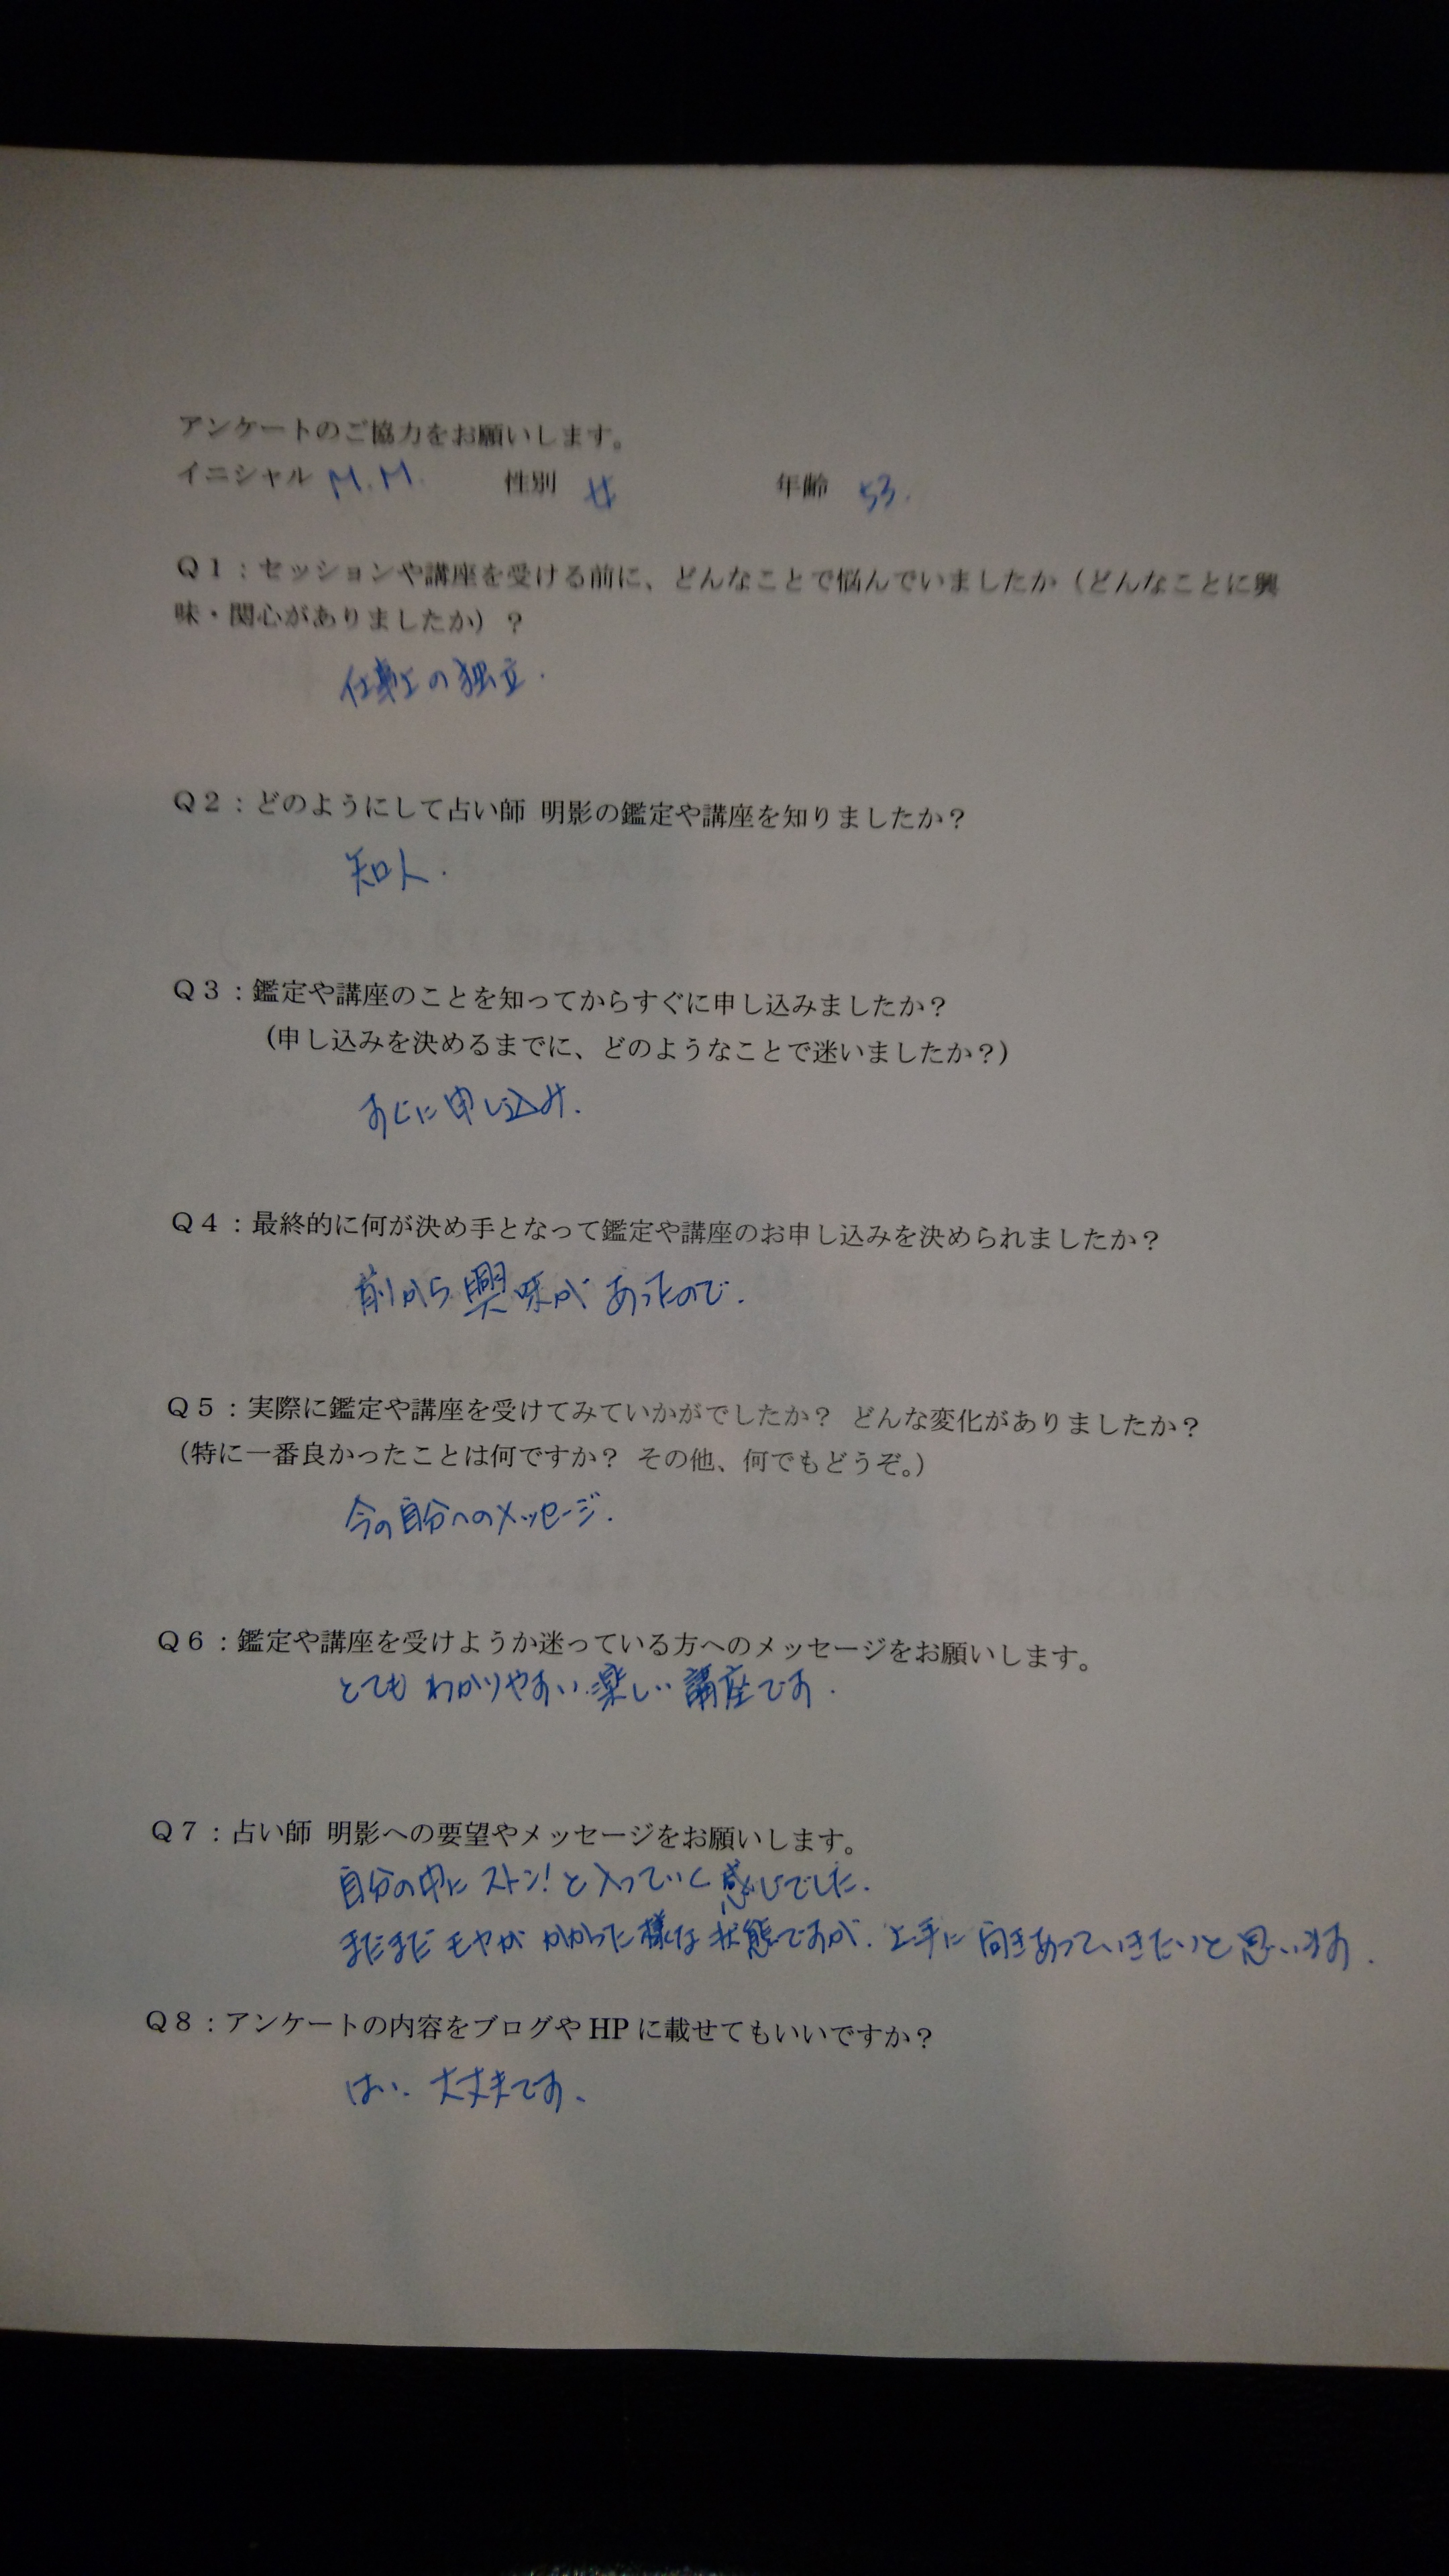 アンケートのご協力をお願いします。
イニシャル M.M. 性別 女 年齢 53.
Q1：セッションや講座を受ける前に、どんなことで悩んでいましたか（どんなことに興
味・関心がありましたか）？
仕事上の独立.
Q2：どのようにして占い師 明影の鑑定や講座を知りましたか？
知人.
Q3：鑑定や講座のことを知ってからすぐに申し込みましたか？
（申し込みを決めるまでに、どのようなことで迷いましたか？）
すぐに申し込み.
Q4：最終的に何が決め手となって鑑定や講座のお申し込みを決められましたか？
前から興味があったので.
Q5：実際に鑑定や講座を受けてみていかがでしたか？ どんな変化がありましたか？
（特に一番良かったことは何ですか？ その他、何でもどうぞ。）
今の自分へのメッセージ.
Q6：鑑定や講座を受けようか迷っている方へのメッセージをお願いします。
とてもわかりやすい楽しい講座です.
Q7：占い師 明影への要望やメッセージをお願いします。
自分の中にストン！と入っていく感じでした.
まだまだモヤがかかった様な状態ですが、上手に向きあっていきたいと思います.
Q8：アンケートの内容をブログやHPに載せてもいいですか？
はい、大丈夫です、